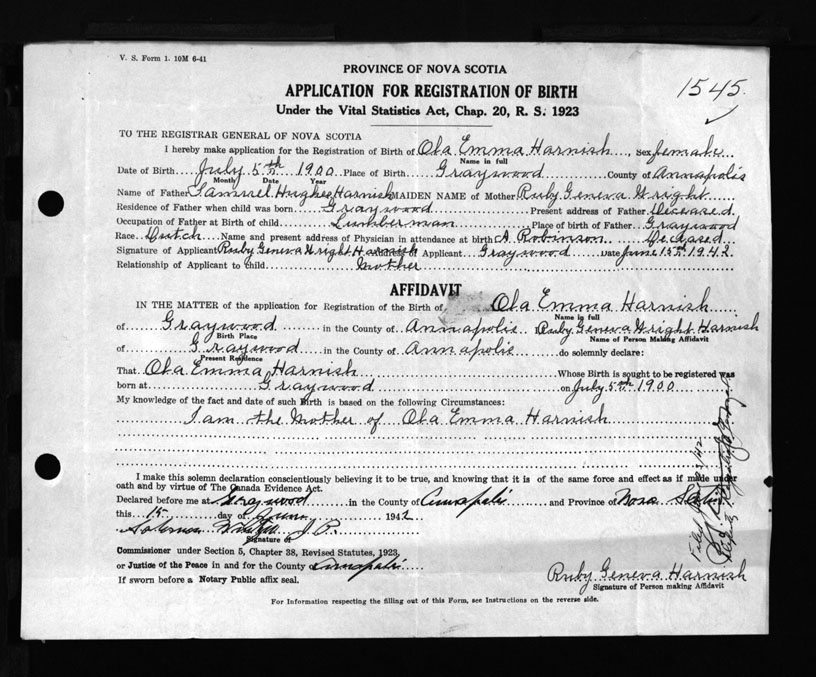 V. S. Form 1. 10M 6-41
PROVINCE OF NOVA SCOTIA
1545
APPLICATION FOR REGISTRATION OF BIRTH
Under the Vital Statistics Act, Chap. 20, R. S. 1923
TO THE REGISTRAR GENERAL OF NOVA SCOTIA
I hereby make application for the Registration of Birth of Ola Emma Harnish, Sex female
Name in full
Date of Birth July 5th 1900 Place of Birth Graywood County of Annapolis
Month Date Year
Name of Father Samuel Hughes Harnish MAIDEN NAME of Mother Ruby Geneva Wright
Residence of Father when child was born Graywood Present address of Father Deceased.
Occupation of Father at Birth of child Lumberman Place of birth of Father Graywood
Race Dutch Name and present address of Physician in attendance at birth A Robinson Deceased
Signature of Applicant Ruby Geneva Wright Harnish Address of Applicant Graywood Date June 15th 1942
Relationship of Applicant to child Mother
AFFIDAVIT
IN THE MATTER of the application for Registration of the Birth of Ola Emma Harnish
Name in full
of Graywood in the County of Annapolis I Ruby Geneva Wright Harnish
Birth Place Name of Person Making Affidavit
of Graywood in the County of Annapolis do solemnly declare:
Present Residence
That Ola Emma Harnish Whose Birth is sought to be registered was
born at Graywood on July 5th 1900
My knowledge of the fact and date of such Birth is based on the following Circumstances:
I am the Mother of Ola Emma Harnish
I make this solemn declaration conscientiously believing it to be true, and knowing that it is of the same force and effect as if made under
oath and by virtue of The Canada Evidence Act.
Declared before me at Graywood in the County of Annapolis and Province of Nova Scotia
this 15 day of June 1942
J. P.
Signature of
Commissioner under Section 5, Chapter 38, Revised Statutes, 1923,
or Justice of the Peace in and for the County of Annapolis
If sworn before a Notary Public affix seal.
Ruby Geneva Harnish
Signature of Person making Affidavit
For Information respecting the filling out of this Form, see Instructions on the reverse side.